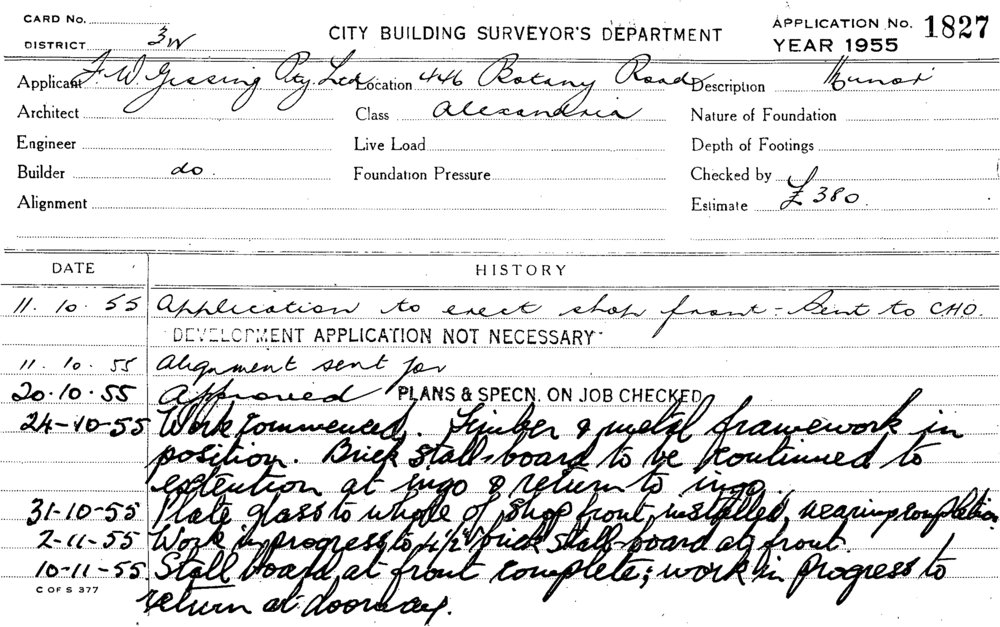 CARD No.
CITY BUILDING SURVEYOR'S DEPARTMENT
APPLICATION No. 1827
DISTRICT 3W
YEAR 1955
Applicant F. W. Gissing Pty. Ltd Location 446 Botany Road Description Minor
Architect Class Alexandria Nature of Foundation
Engineer Live Load Depth of Footings
Builder do. Foundation Pressure Checked by
Alignment Estimate £380.
DATE HISTORY
11.10.55 Application to erect shop front - Sent to CHO.
DEVELOPMENT APPLICATION NOT NECESSARY
11.10.55 Alignment sent for
20.10.55 Approved PLANS & SPECN. ON JOB CHECKED
24-10-55 Work commenced. Timber & metal framework in
position. Brick stall-board to be continued to
extention at ingo & return to ingo.
31-10-55 Plate glass to whole of shop front installed, nearing completion
2-11-55 Work in progress to 4½" brick stall-board at front.
10-11-55 Stall board at front complete; work in progress to
C OF S 377
return at doorway.